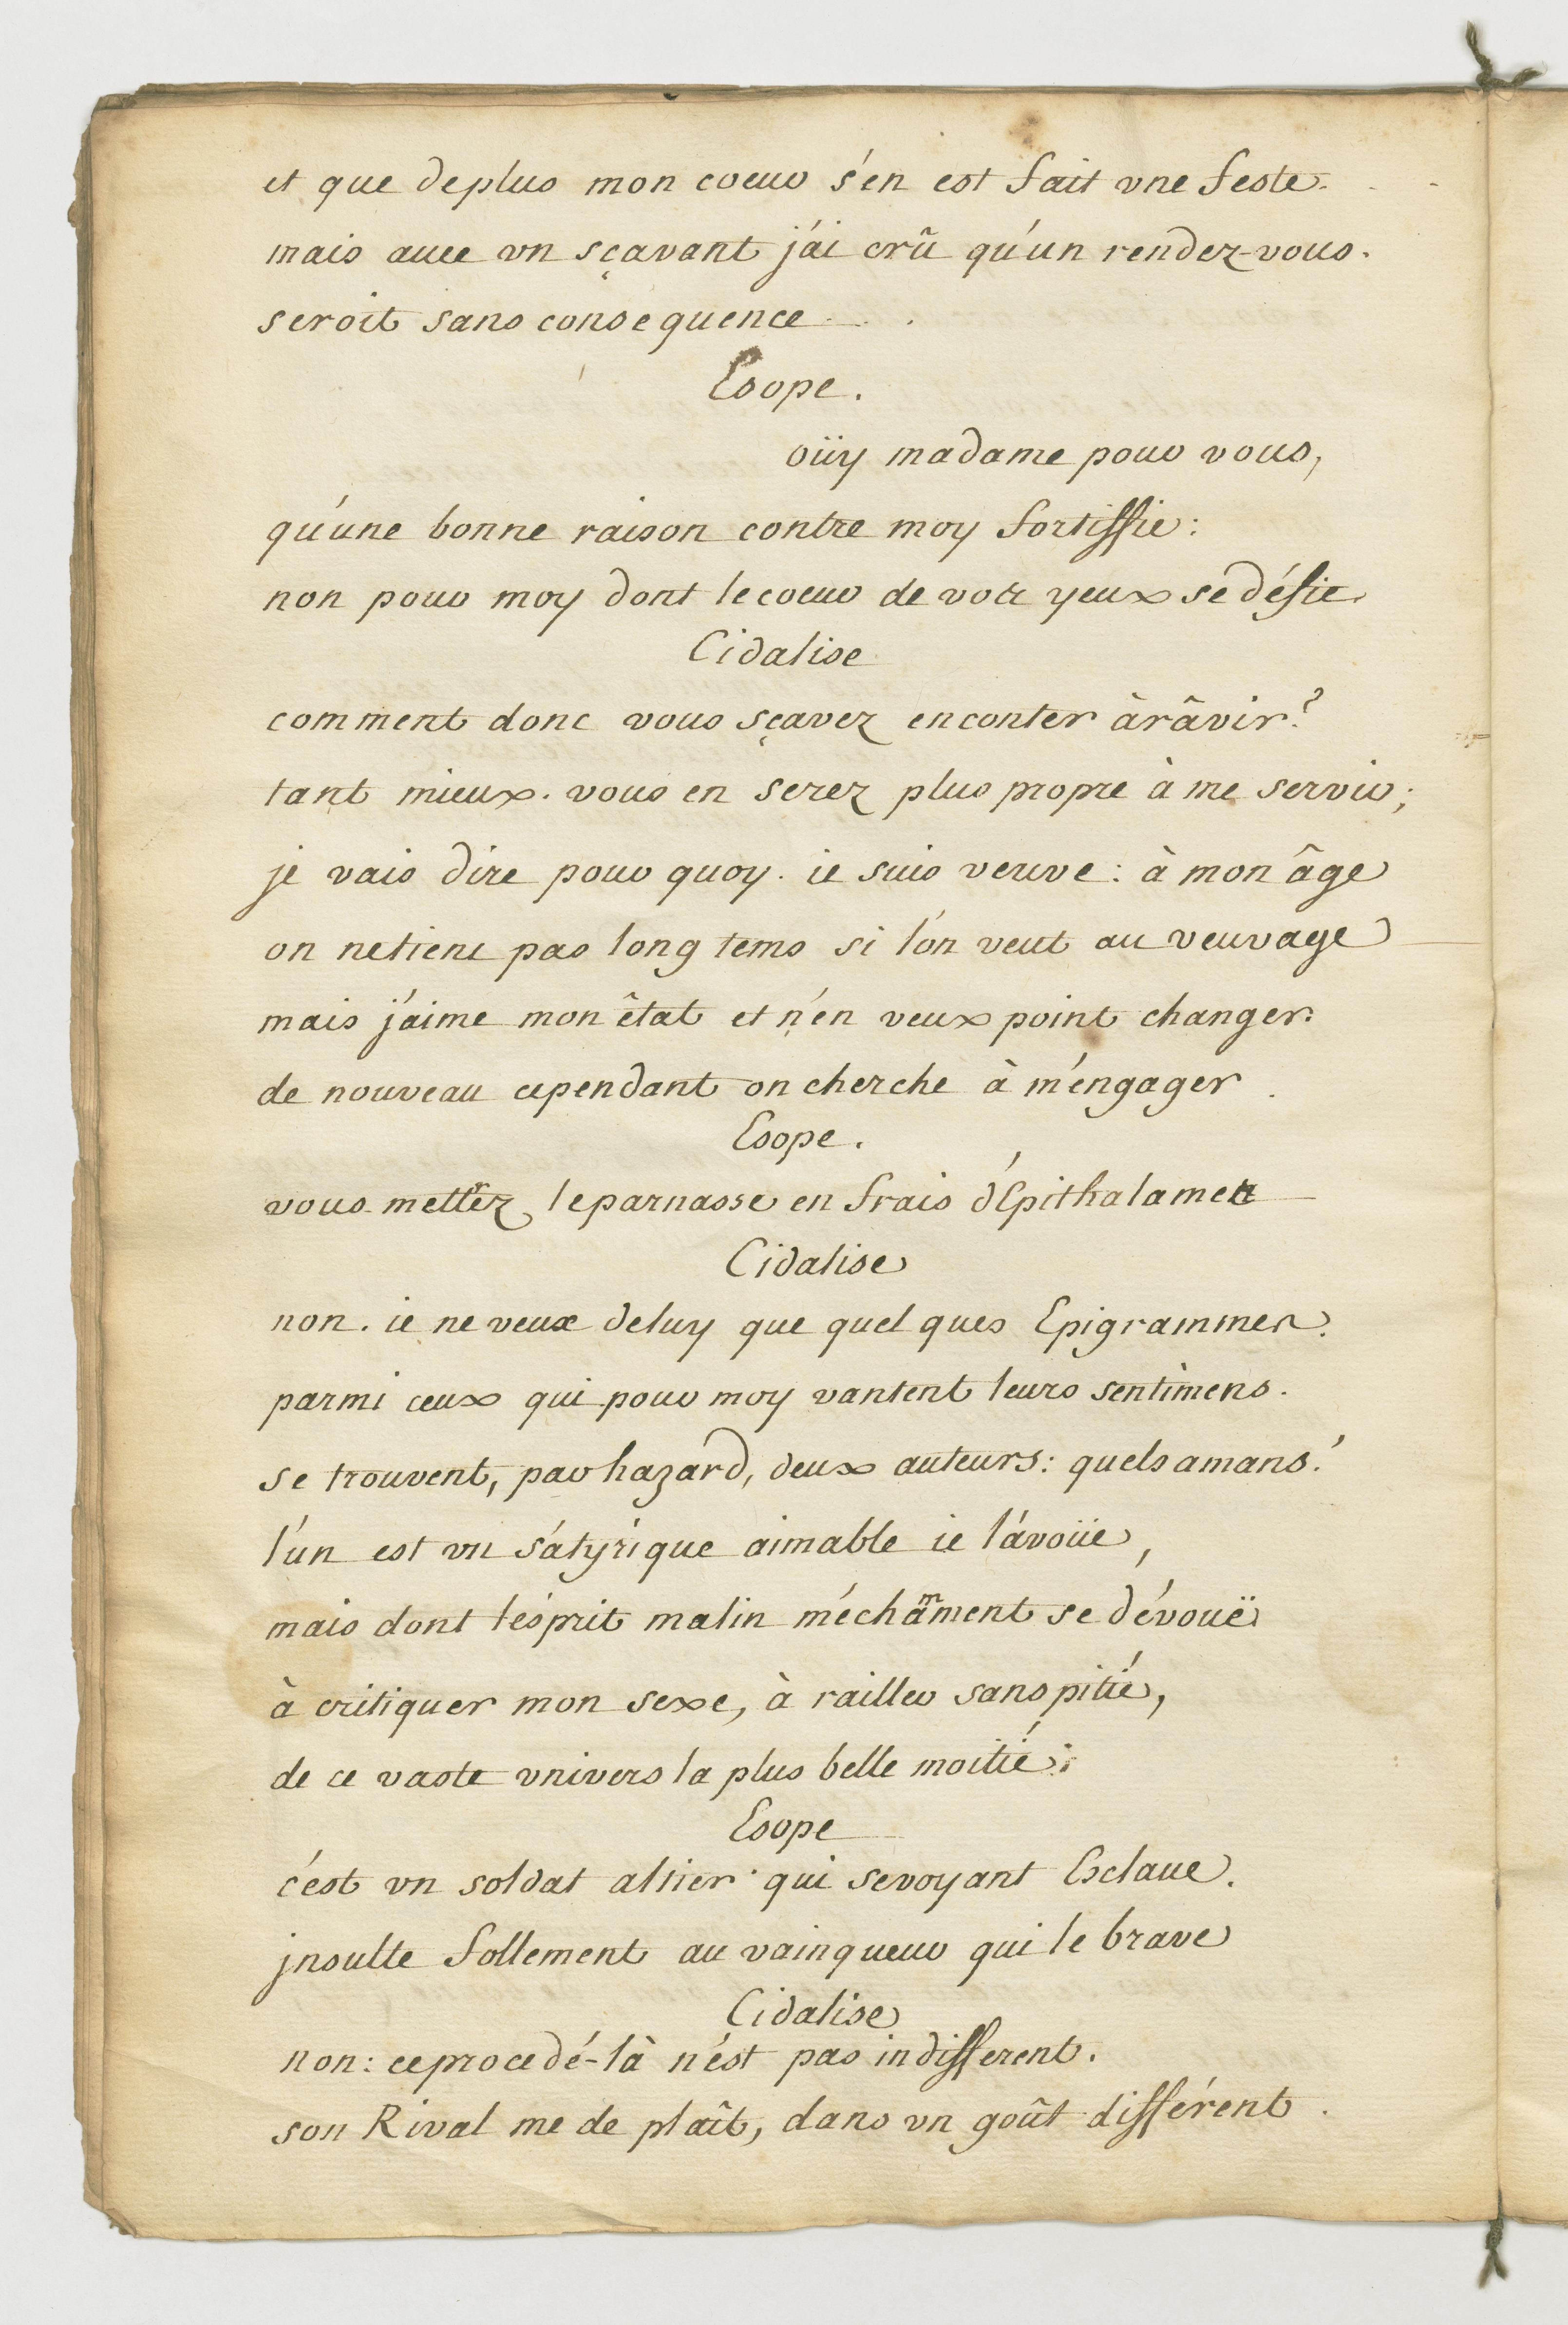 et que deplus mon coeur s'en est fait vne feste.
mais auec vn sçavant j'ai crû qu'un rendez-vous.
seroit sans consequence...
Esope.
oüy madame pour vous,
qu'une bonne raison contre moy fortiffie:
non pour moy dont le coeur de vos yeux se défie.
Cidalise
comment donc vous sçavez en conter à râvir?
tant mieux. vous en serez plus propre à me servir;
je vais dire pour quoy. ie suis veuve: à mon âge
on ne tient pas long tems si l'on veut au veuvage
mais j'aime mon êtat et n'en veux point changer.
de nouveau cependant on cherche à m'engager.
Esope.
vous mettrez le parnasse en frais d'Epithalames
Cidalise
non. ie ne veux de luy que quel ques Epigrammes.
parmi ceux qui pour moy vantent leurs sentimens.
se trouvent, par hazard, deux auteurs: quels amans!
l'un est vn sátyrique aimable ie l'avoüe,
mais dont l'esprit malin méchamment se dévouë
à critiquer mon sexe, à railler sans pitié,
de ce vaste vnivers la plus belle moitié:
Esope
c'est vn soldat altier qui se voyant Esclaue.
jnsulte follement au vainqueur qui le brave
Cidalise
non: ce procedé-là n'est pas indifferent.
son Rival me de plaît, dans vn goût différent.